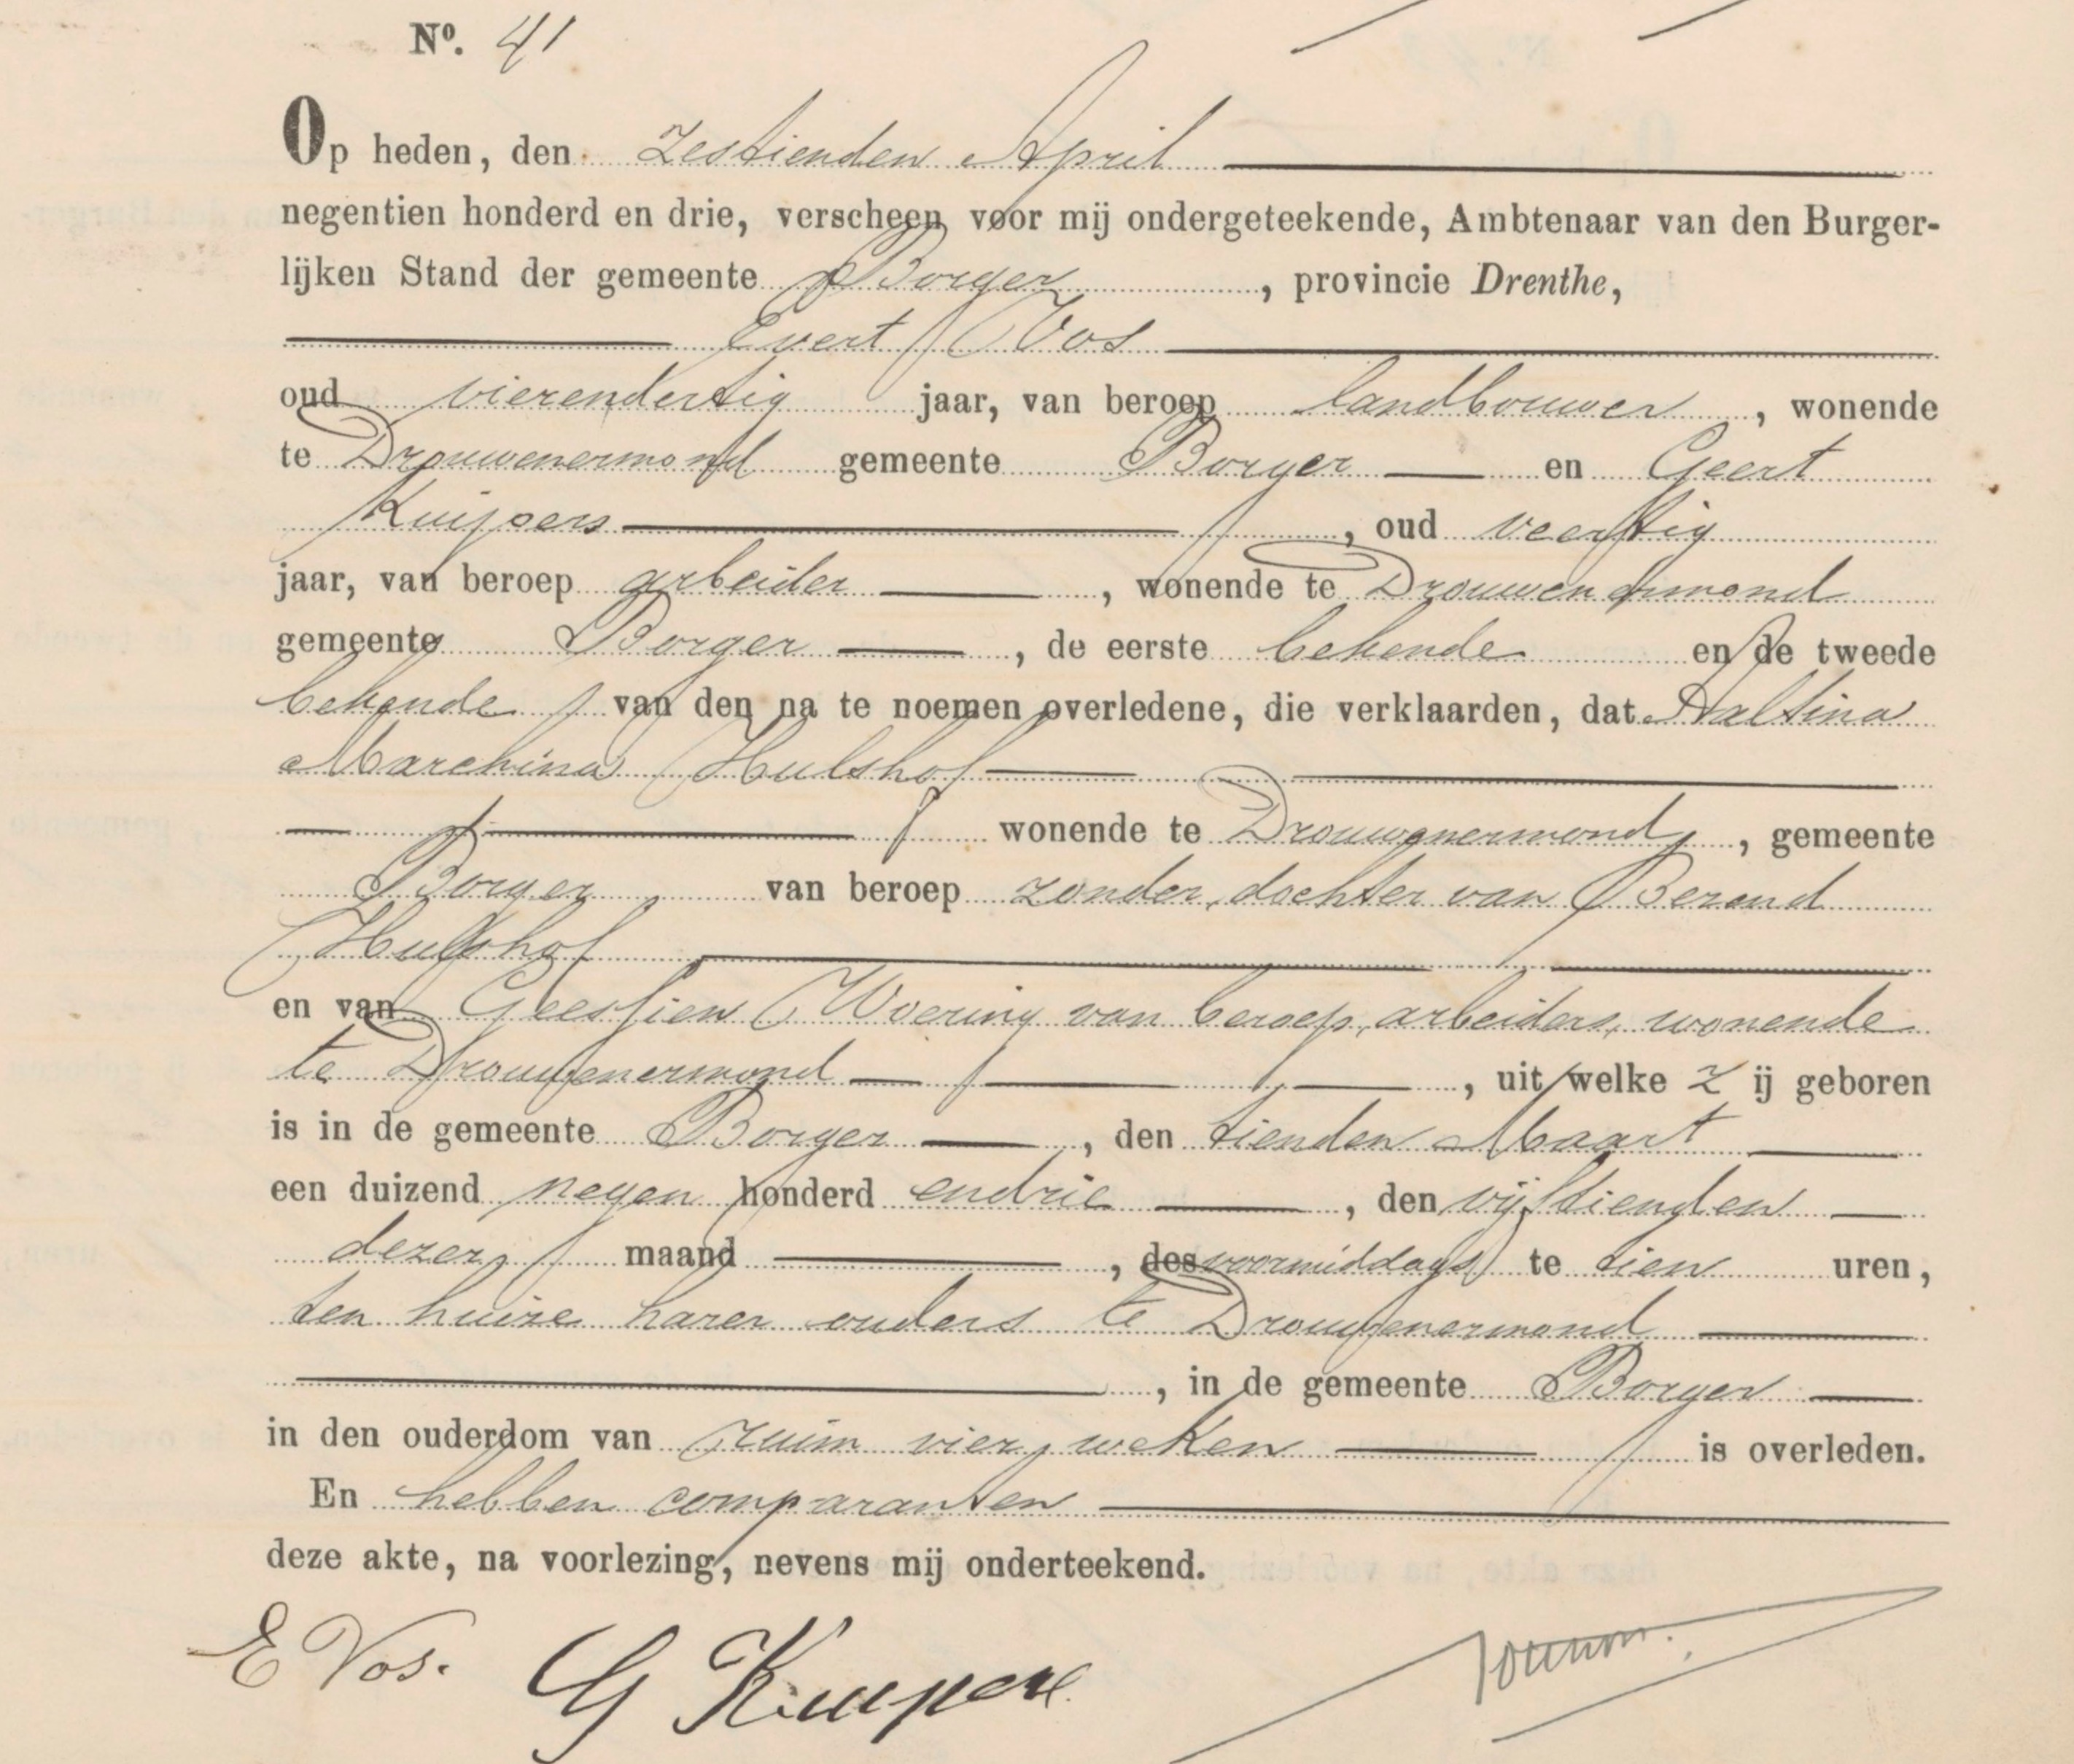 Nº. 41
Op heden, den zestienden April
negentien honderd en drie, verscheen voor mij ondergeteekende, Ambtenaar van den Burger-
lijken Stand der gemeente Borger, provincie Drenthe,
Evert Vos
oud vierendertig jaar, van beroep landbouwer, wonende
te Drouwenermond gemeente Borger en Geert
Kuipers, oud veertig
jaar, van beroep arbeider, wonende te Drouwenermond
gemeente Borger, de eerste bekende en de tweede
bekende van den na te noemen overledene, die verklaarden, dat Aaltina
Marchina Hulshof
wonende te Drouwenermond, gemeente
Borger van beroep zonder, dochter van Berend
Hulshof
en van Geessien Woering van beroep, arbeiders, wonende
te Drouwenermond, uit welke z ij geboren
is in de gemeente Borger, den tienden Maart
een duizend negen honderd endrie, den vijftienden
dezer maand, des voormiddags te tien uren,
ten huize harer ouders te Drouwenermond
, in de gemeente Borger
in den ouderdom van ruim vier weken is overleden.
En hebben comparanten
deze akte, na voorlezing, nevens mij onderteekend.
E Vos. G Kuipers